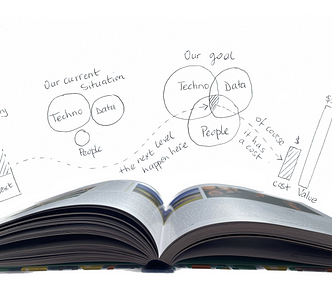 Our current
Situation
Techno
Data
People
the next level
happen here
Our goal
Techno
Data
People
of course
it has
a cost
$
cost
Value
$